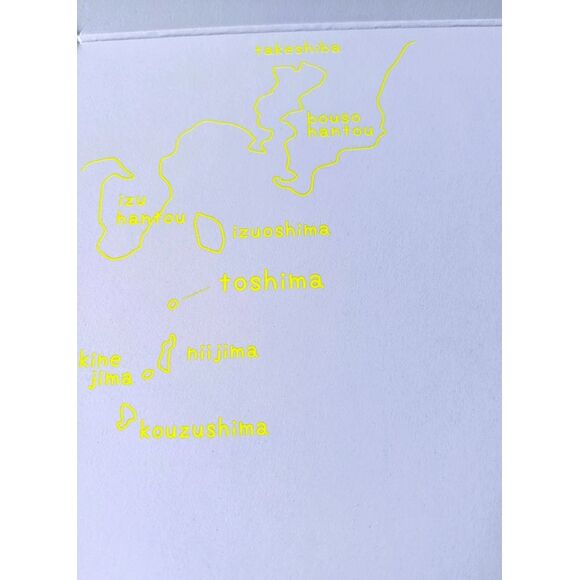 takeshiba
bouso
hantou
izu
hantou
izuoshima
toshima
niijima
kine
jima
kouzushima